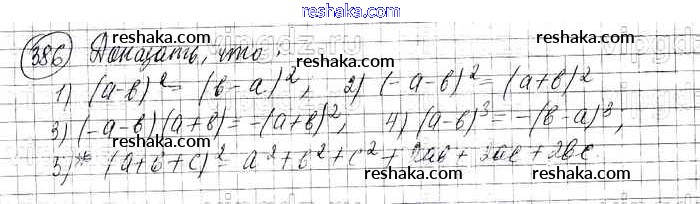 reshaka.com
386) Доказать, что:
reshaka.com
reshaka.com
1) (a-b)² = (b-a)²; 2) (-a-b)² = (a+b)²
3) (-a-b)(a+b) = -(a+b)²; 4) (a-b)³ = -(b-a)³;
5)* (a+b+c)² = a²+b²+c²+2ab+2ac+2bc.
reshaka.com
reshaka.com